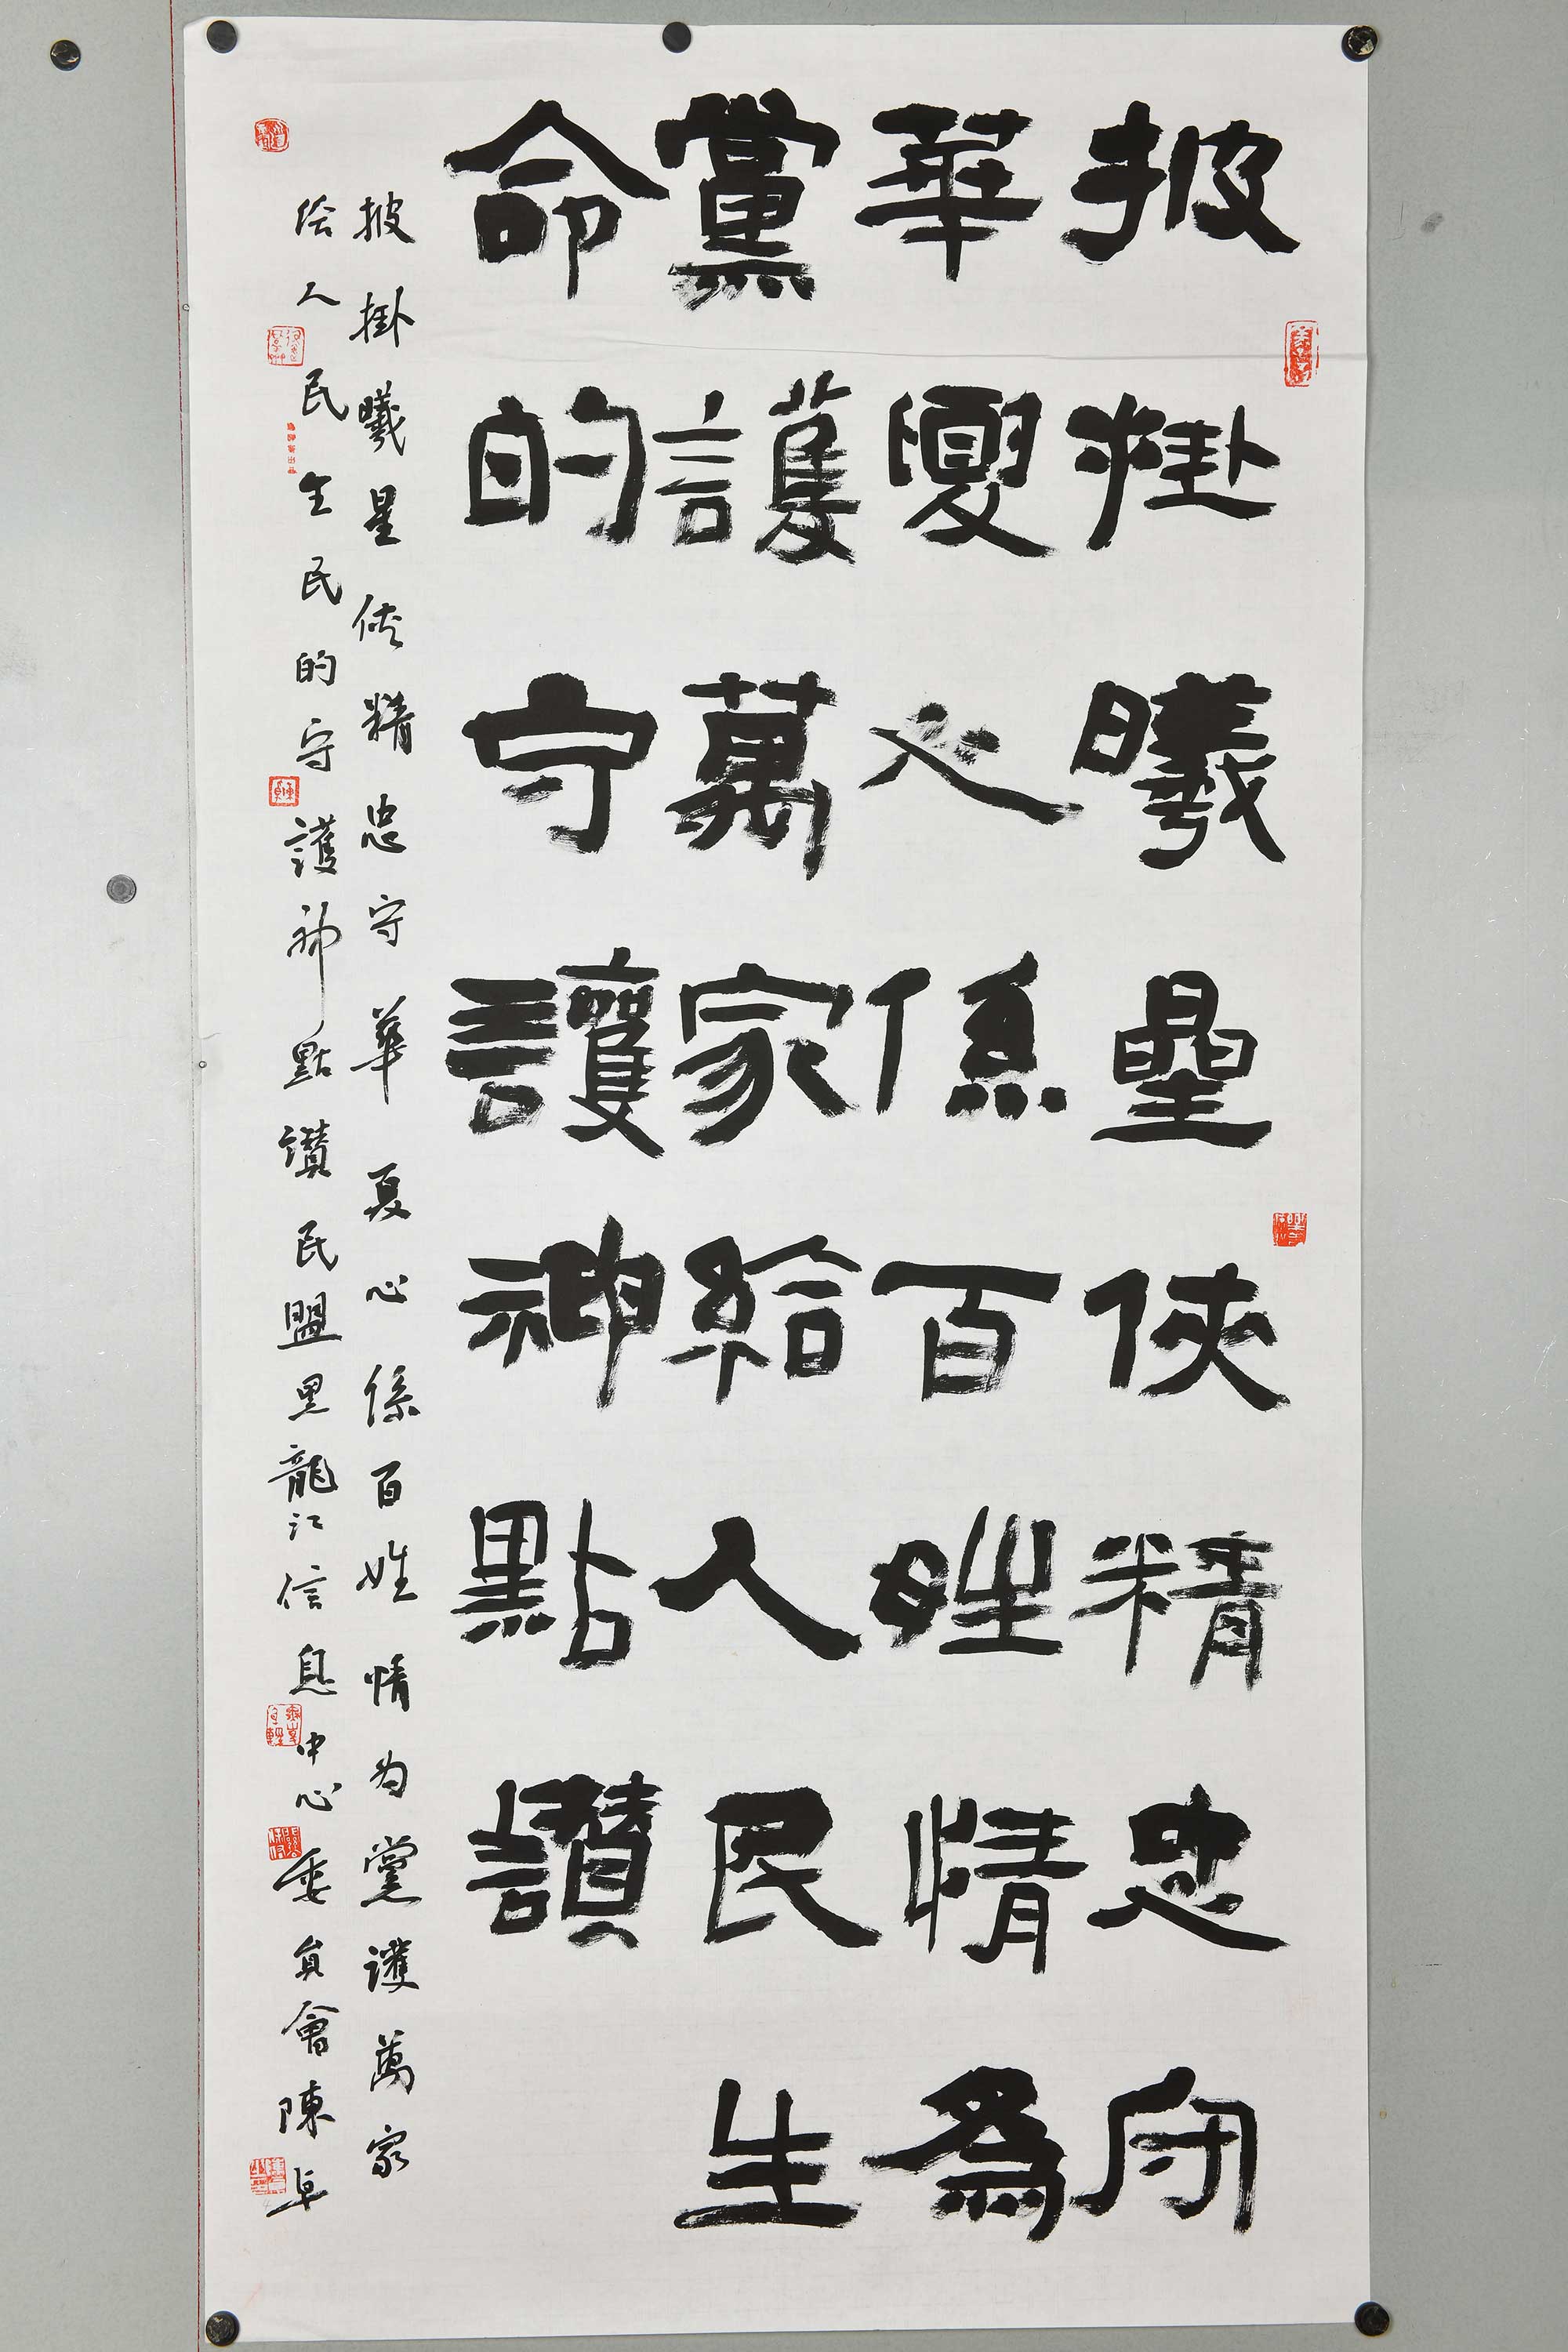 披掛曦星俠精忠守
華夏心係百姓情為
黨護萬家給人民生
命的守護神點讚
披掛曦星俠精忠守華夏心係百姓情为黨護萬家
给人民生民的守護神點讚民盟黑龍江信息中心委員會陳卓